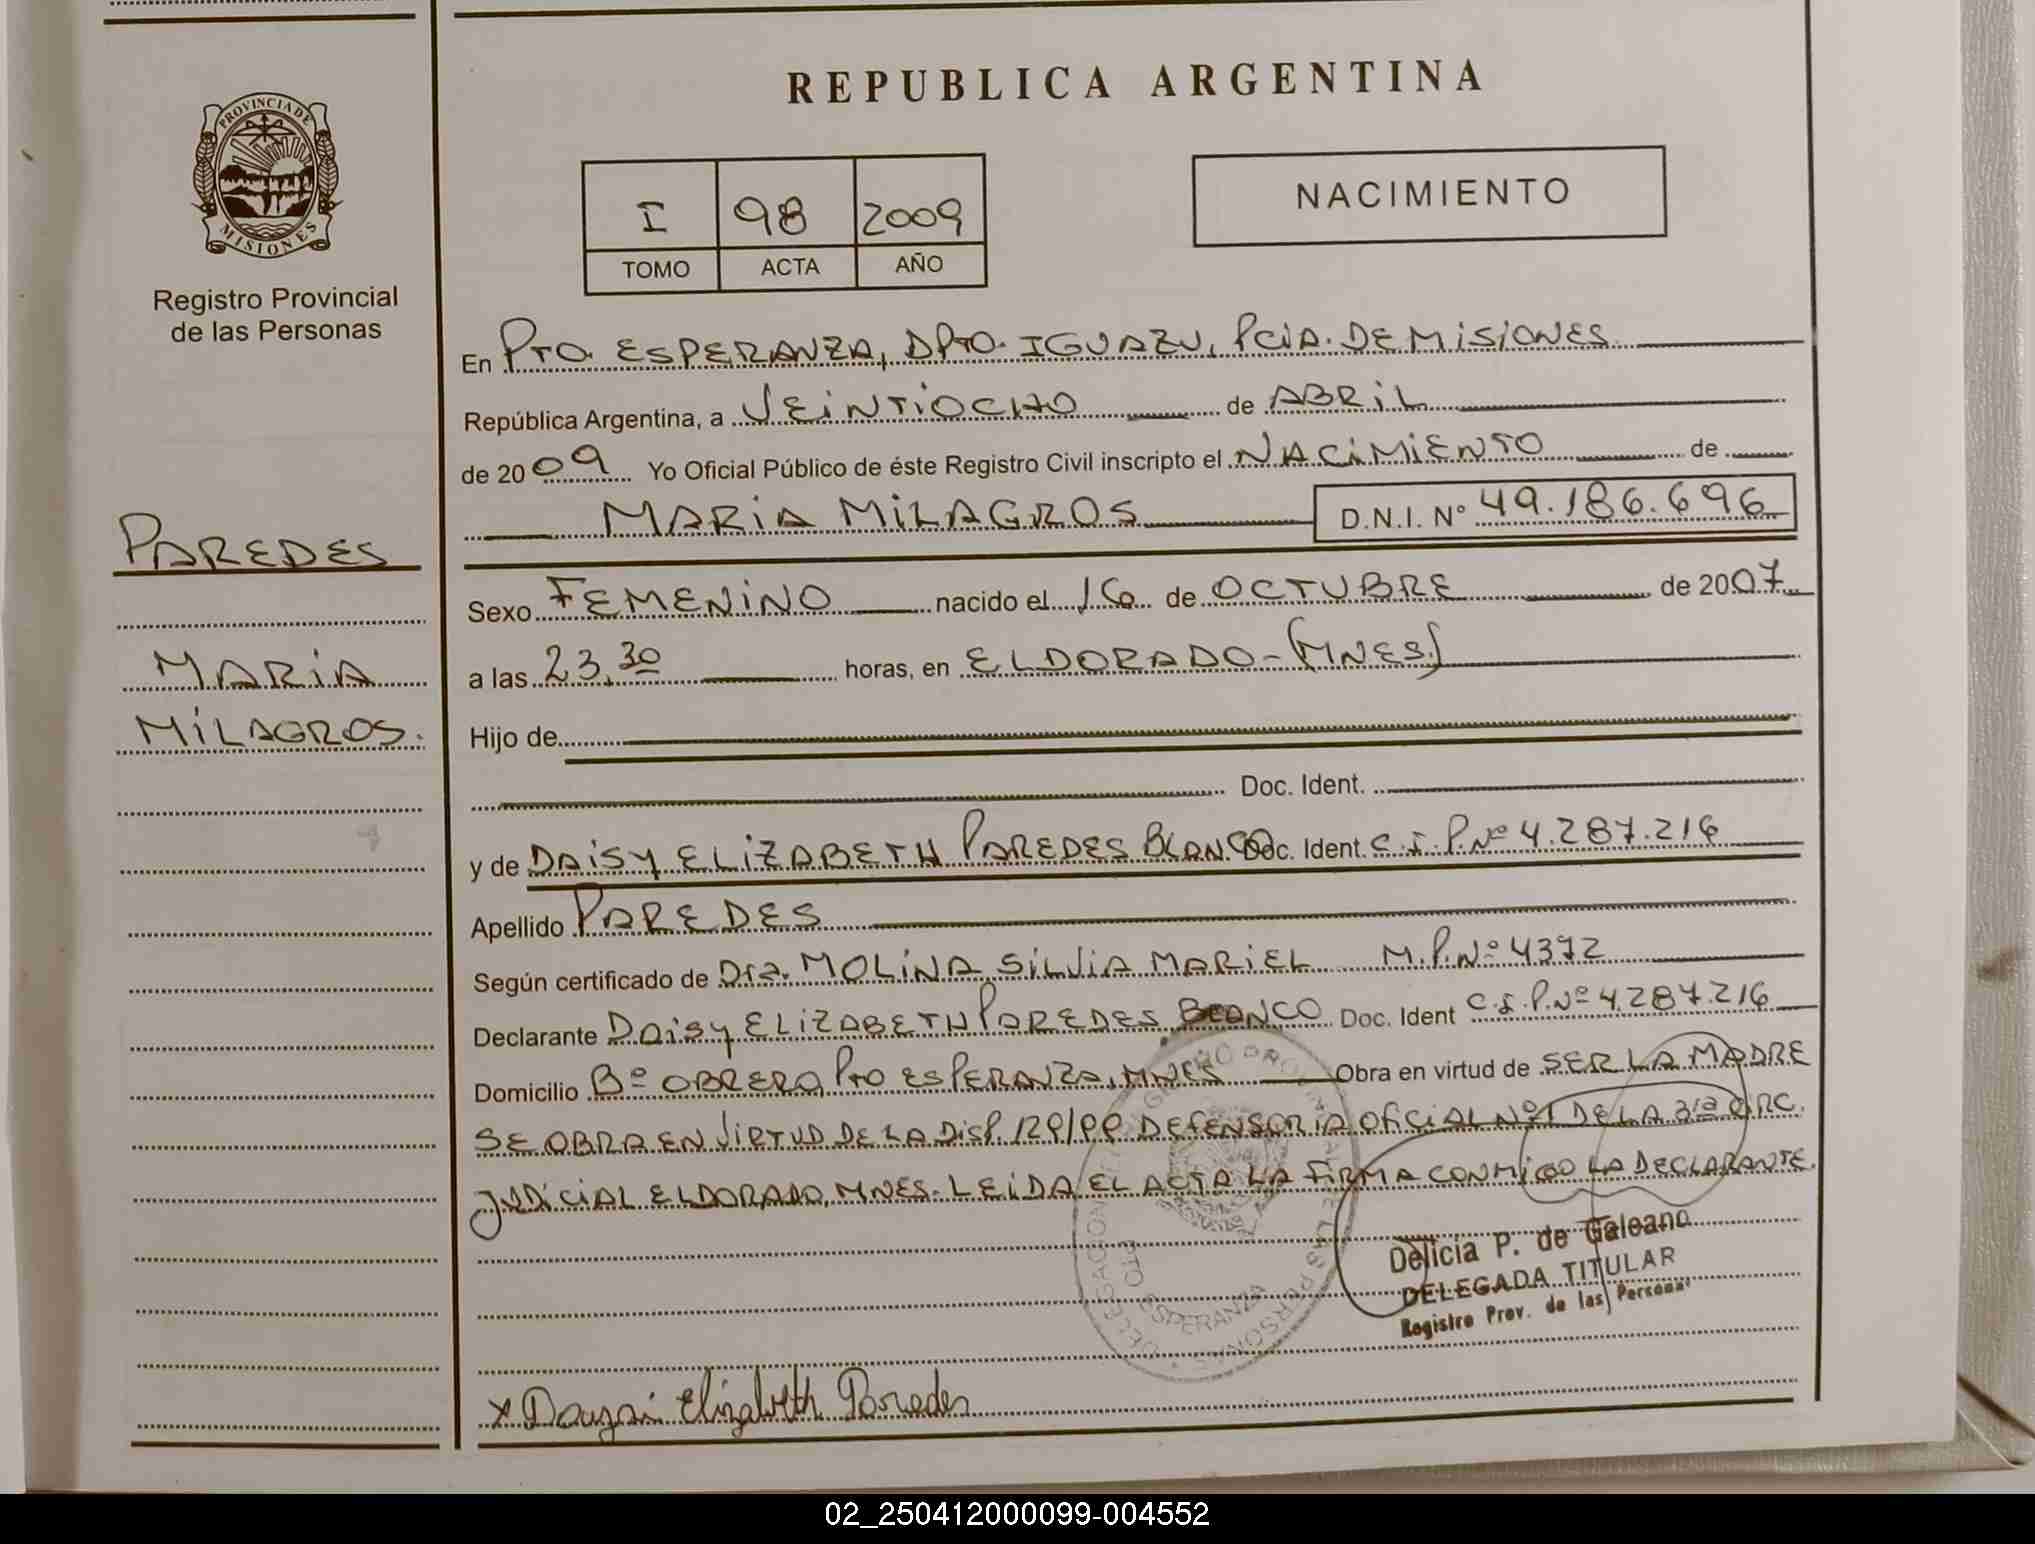 REPUBLICA ARGENTINA
PROVINCIA DE MISIONES
Registro Provincial
de las Personas
I 98 2009
TOMO ACTA AÑO
NACIMIENTO
En PTO. ESPERANZA, DPTO. IGUAZU, PCIA. DE MISIONES
República Argentina, a VEINTIOCHO de ABRIL
de 2009 Yo Oficial Público de éste Registro Civil inscripto el NACIMIENTO de
MARIA MILAGROS D.N.I. Nº 49.186.696
PAREDES
MARIA
MILAGROS.
Sexo FEMENINO nacido el 16 de OCTUBRE de 2007
a las 23,30 horas, en ELDORADO-(MNES.)
Hijo de
Doc. Ident.
y de DAISY ELIZABETH PAREDES BLANCO Doc. Ident. C.I.P.Nº 4.287.216
Apellido PAREDES
Según certificado de Dra. MOLINA SILVIA MARIEL M.P.Nº 4372
Declarante DAISY ELIZABETH PAREDES BLANCO Doc. Ident C.I.P.Nº 4.287.216
Domicilio Bº OBRERO, PTO ESPERANZA, MNES Obra en virtud de SER LA MADRE
SE OBRA EN VIRTUD DE LA DISP. 129/99 DEFENSORIA OFICIAL Nº1 DE LA 3ra CIRC.
JUDICIAL ELDORADO, MNES. LEIDA EL ACTA LA FIRMA CONMIGO LA DECLARANTE.
Delicia P. de Galeano
DELEGADA TITULAR
Registro Prov. de las Personas
PTO ESPERANZA
x Elizabeth Paredes
02_250412000099-004552